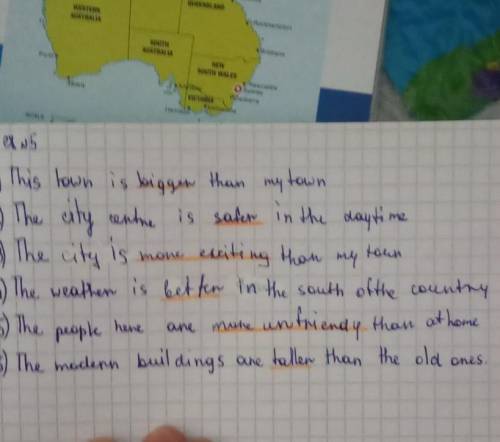 QUEENSLAND
WESTERN
AUSTRALIA
SOUTH
AUSTRALIA
NEW
SOUTH WALES
VICTORIA
ex n5
This town is bigger than my town
) The city centre is safer in the daytime
) The city is more exciting than my town
) The weather is better in the south of the country
5) The people here are more unfriendy than at home
) The modern buildings are taller than the old ones.